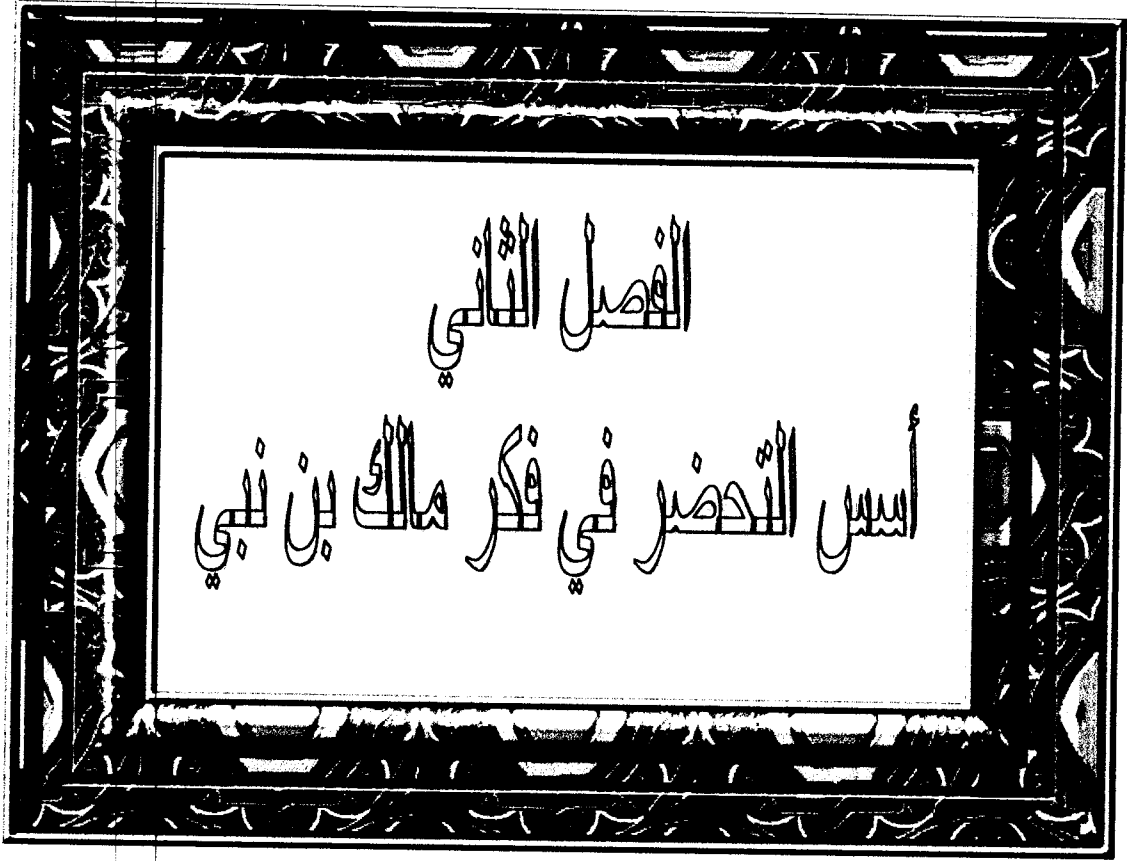 الفصل الثاني
أسس التحضر في فكر مالك بن نبي